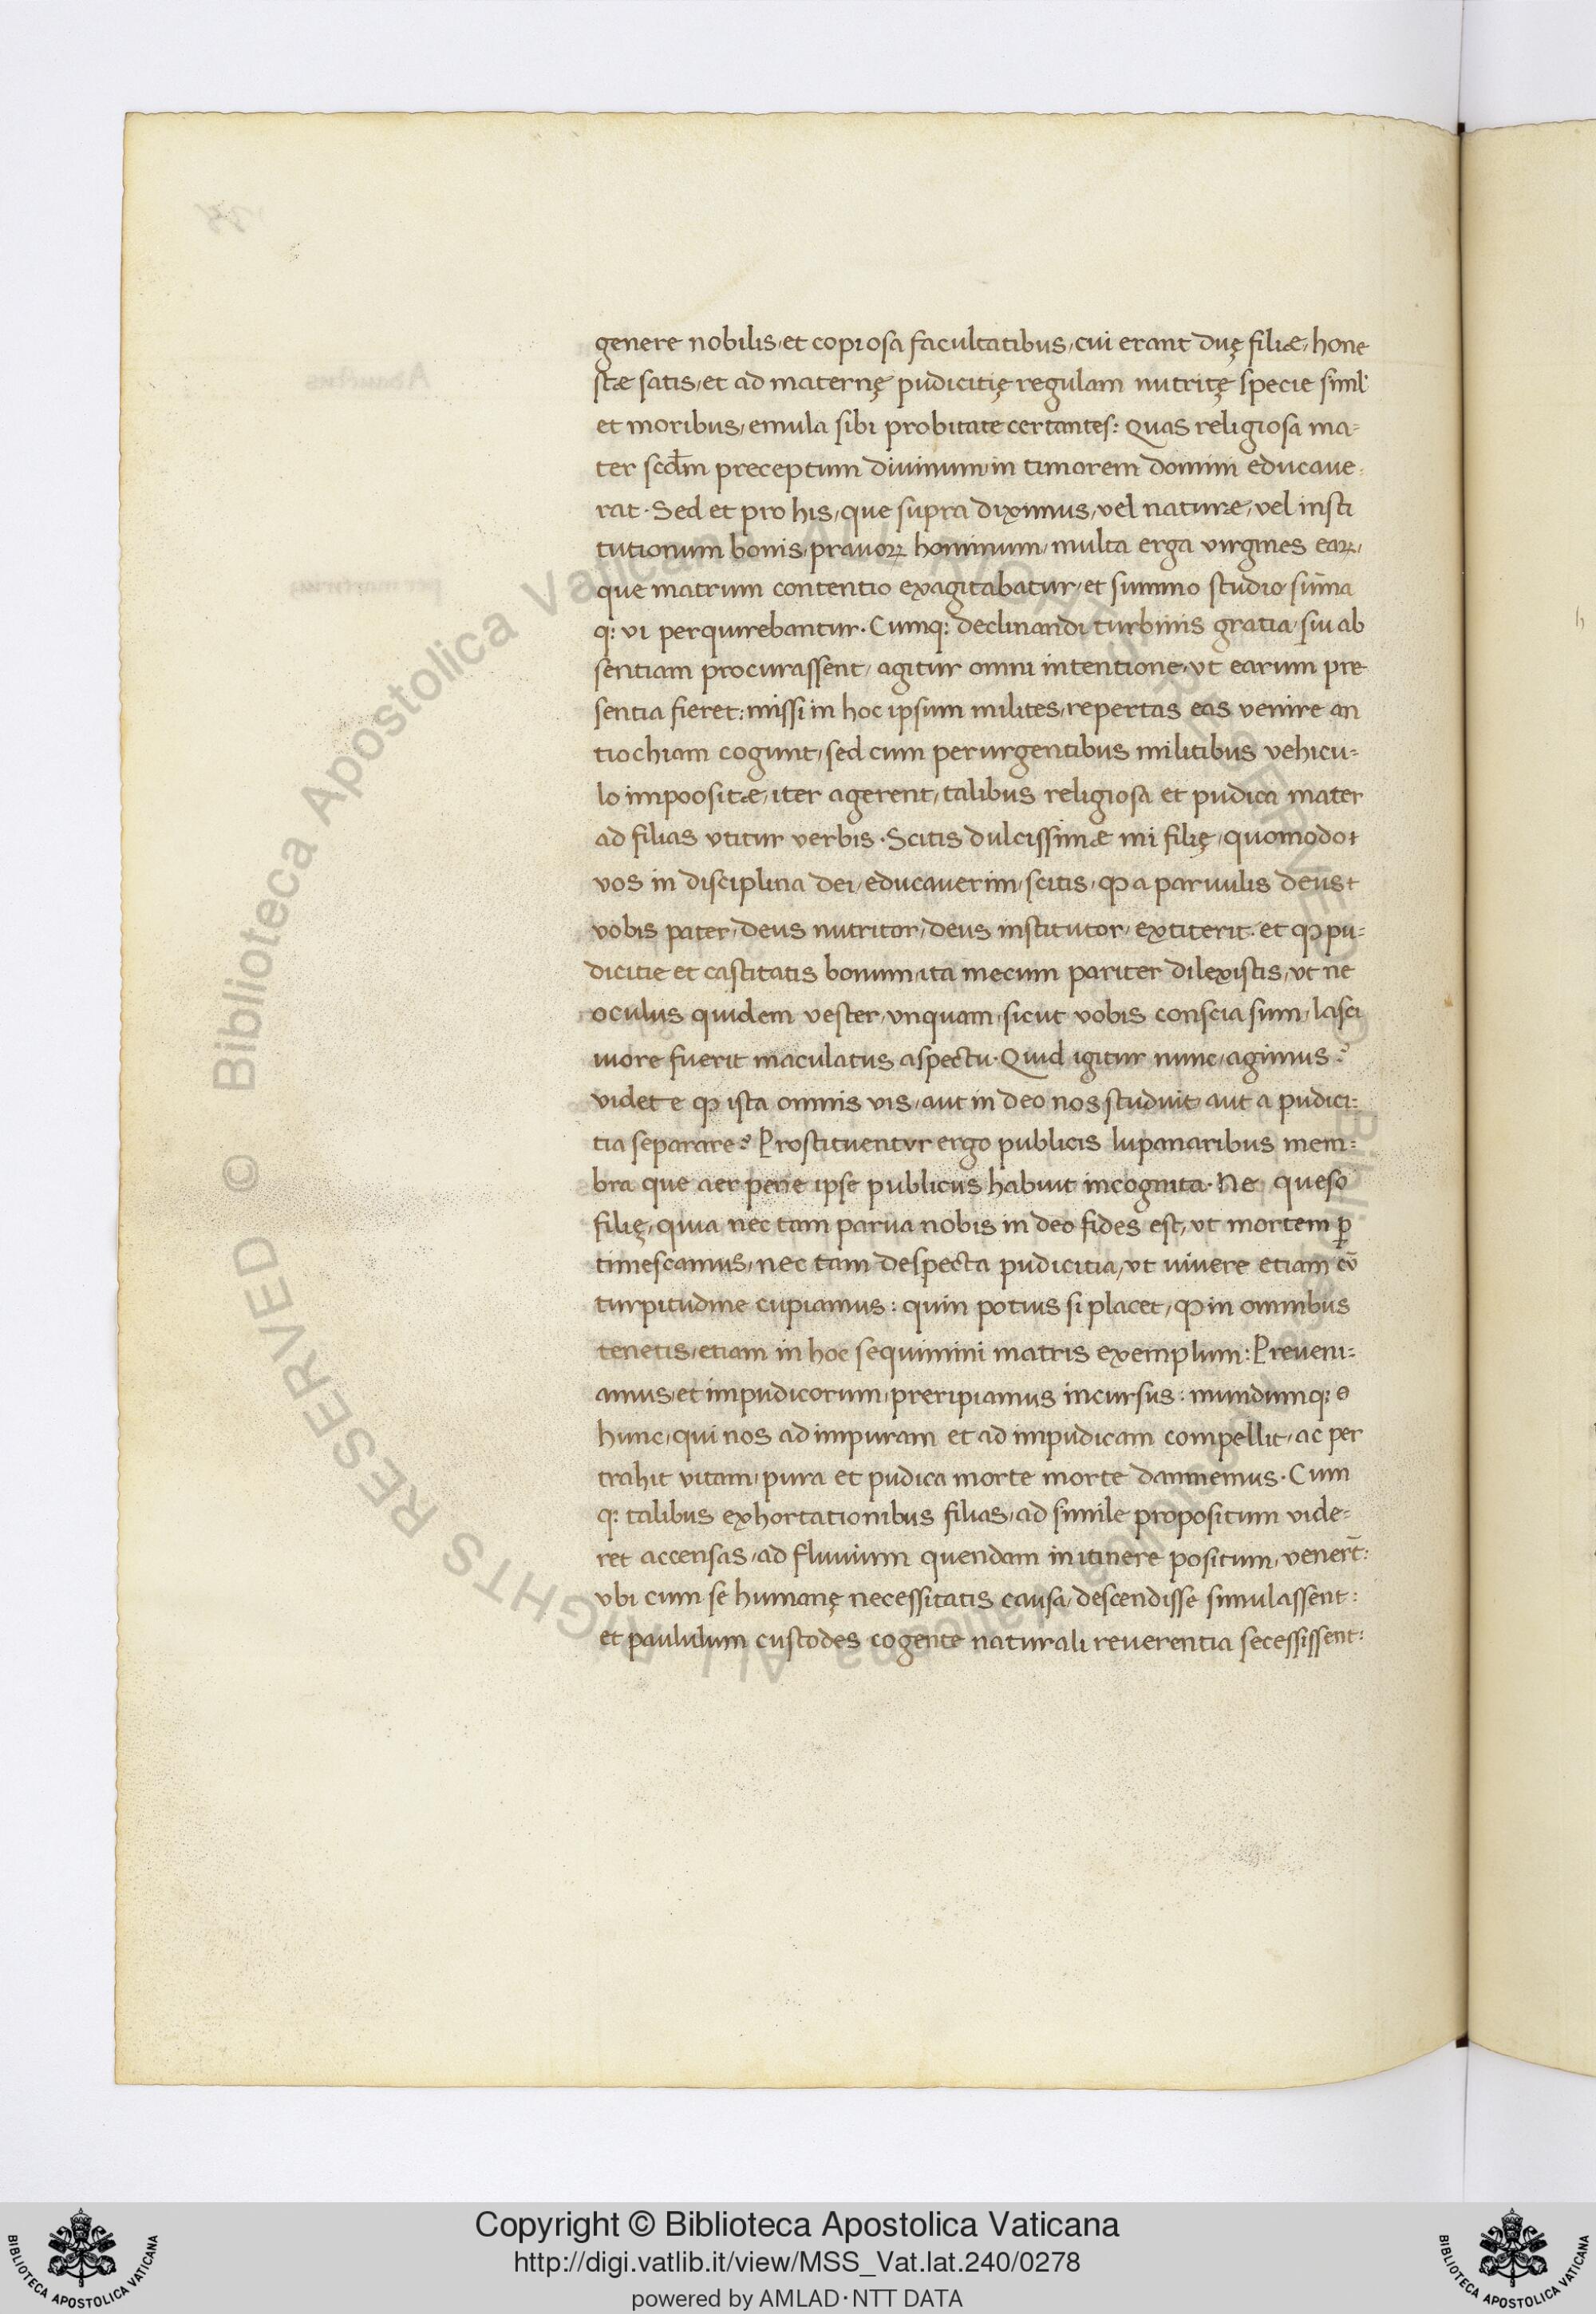 genere nobilis, et copiosa facultatibus, cui erant duę filiæ, hone
stæ satis, et ad maternę pudicitię regulam nutritę specie simul
et moribus, emula sibi probitate certantes: Quas religiosa ma-
ter scđm preceptum diuinum in timorem domini educaue-
rat. Sed et pro his, que supra diximus, vel naturæ, vel insti
tutionum bonis, prauoꝝ hominum, multa erga virgines eaꝝ,
que matrum contentio exagitabatur, et summo studio sūma
q: vi perquirebantur. Cumq: declinandi turbinis gratia, sui ab
sentiam procurassent, agitur omni intentione, vt earum pre
sentia fieret: missi in hoc ipsum milites, repertas eas venire an
tiochiam cogunt, sed cum perurgentibus militibus vehicu-
lo impoositæ, iter agerent, talibus religiosa et pudica mater
ad filias vtitur verbis. Scitis dulcissimæ mi filię, quomodo
vos in disciplina dei, educauerim, scitis, ꝙ a paruulis deus
vobis pater, deus nutritor, deus institutor, extiterit. et ꝙ pu-
dicitie et castitatis bonum ita mecum pariter dilexistis, vt ne
oculus quidem vester, vnquam, sicut vobis conscia sum, lasci
uiore fuerit maculatus aspectu. Quid igitur nunc, agimus?
videte ꝙ ista omnis vis, aut in deo nos studuit aut a pudici-
tia separare? Prostituentvr ergo publicis lupanaribus mem-
bra que aer pene ipse publicus habuit incognita. Ne queso
filię, quia nec tam parua nobis in deo fides est, vt mortem ꝑ
timescamus, nec tam despecta pudicitia, vt uiuere etiam cū
turpitudine cupiamus: quin potius si placet, ꝙ in omnibus
tenetis, etiam in hoc sequimini matris exemplum: Preueni-
amus, et impudicorum, preripiamus incursus: mundumq:
hunc, qui nos ad impuram et ad impudicam compellit, ac per
trahit vitam, pura et pudica morte morte damnemus. Cum
q: talibus exhortationibus filias, ad simile propositum vide-
ret accensas, ad fluuium quendam in itinere positum, venert̄:
vbi cum se humanę necessitatis causa, descendisse simulassent:
et paululum custodes cogente naturali reuerentia secessissent:
© Biblioteca Apostolica Vaticana ALL RIGHTS RESERVED
© Biblioteca Apostolica Vaticana ALL RIGHTS RESERVED
Copyright © Biblioteca Apostolica Vaticana
http://digi.vatlib.it/view/MSS_Vat.lat.240/0278
powered by AMLAD·NTT DATA
BIBLIOTECA APOSTOLICA VATICANA
BIBLIOTECA APOSTOLICA VATICANA